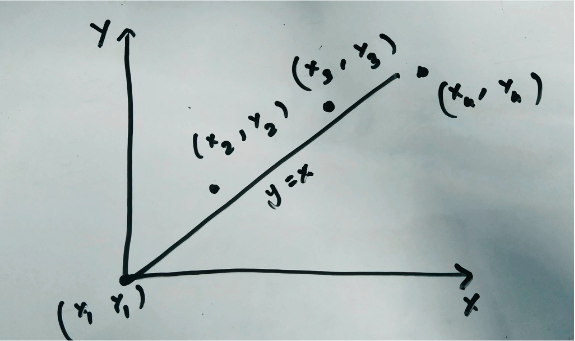 Y
(x3, Y3)
(x4, Y4)
(x2, Y2)
y=x
(x1 Y1)
X